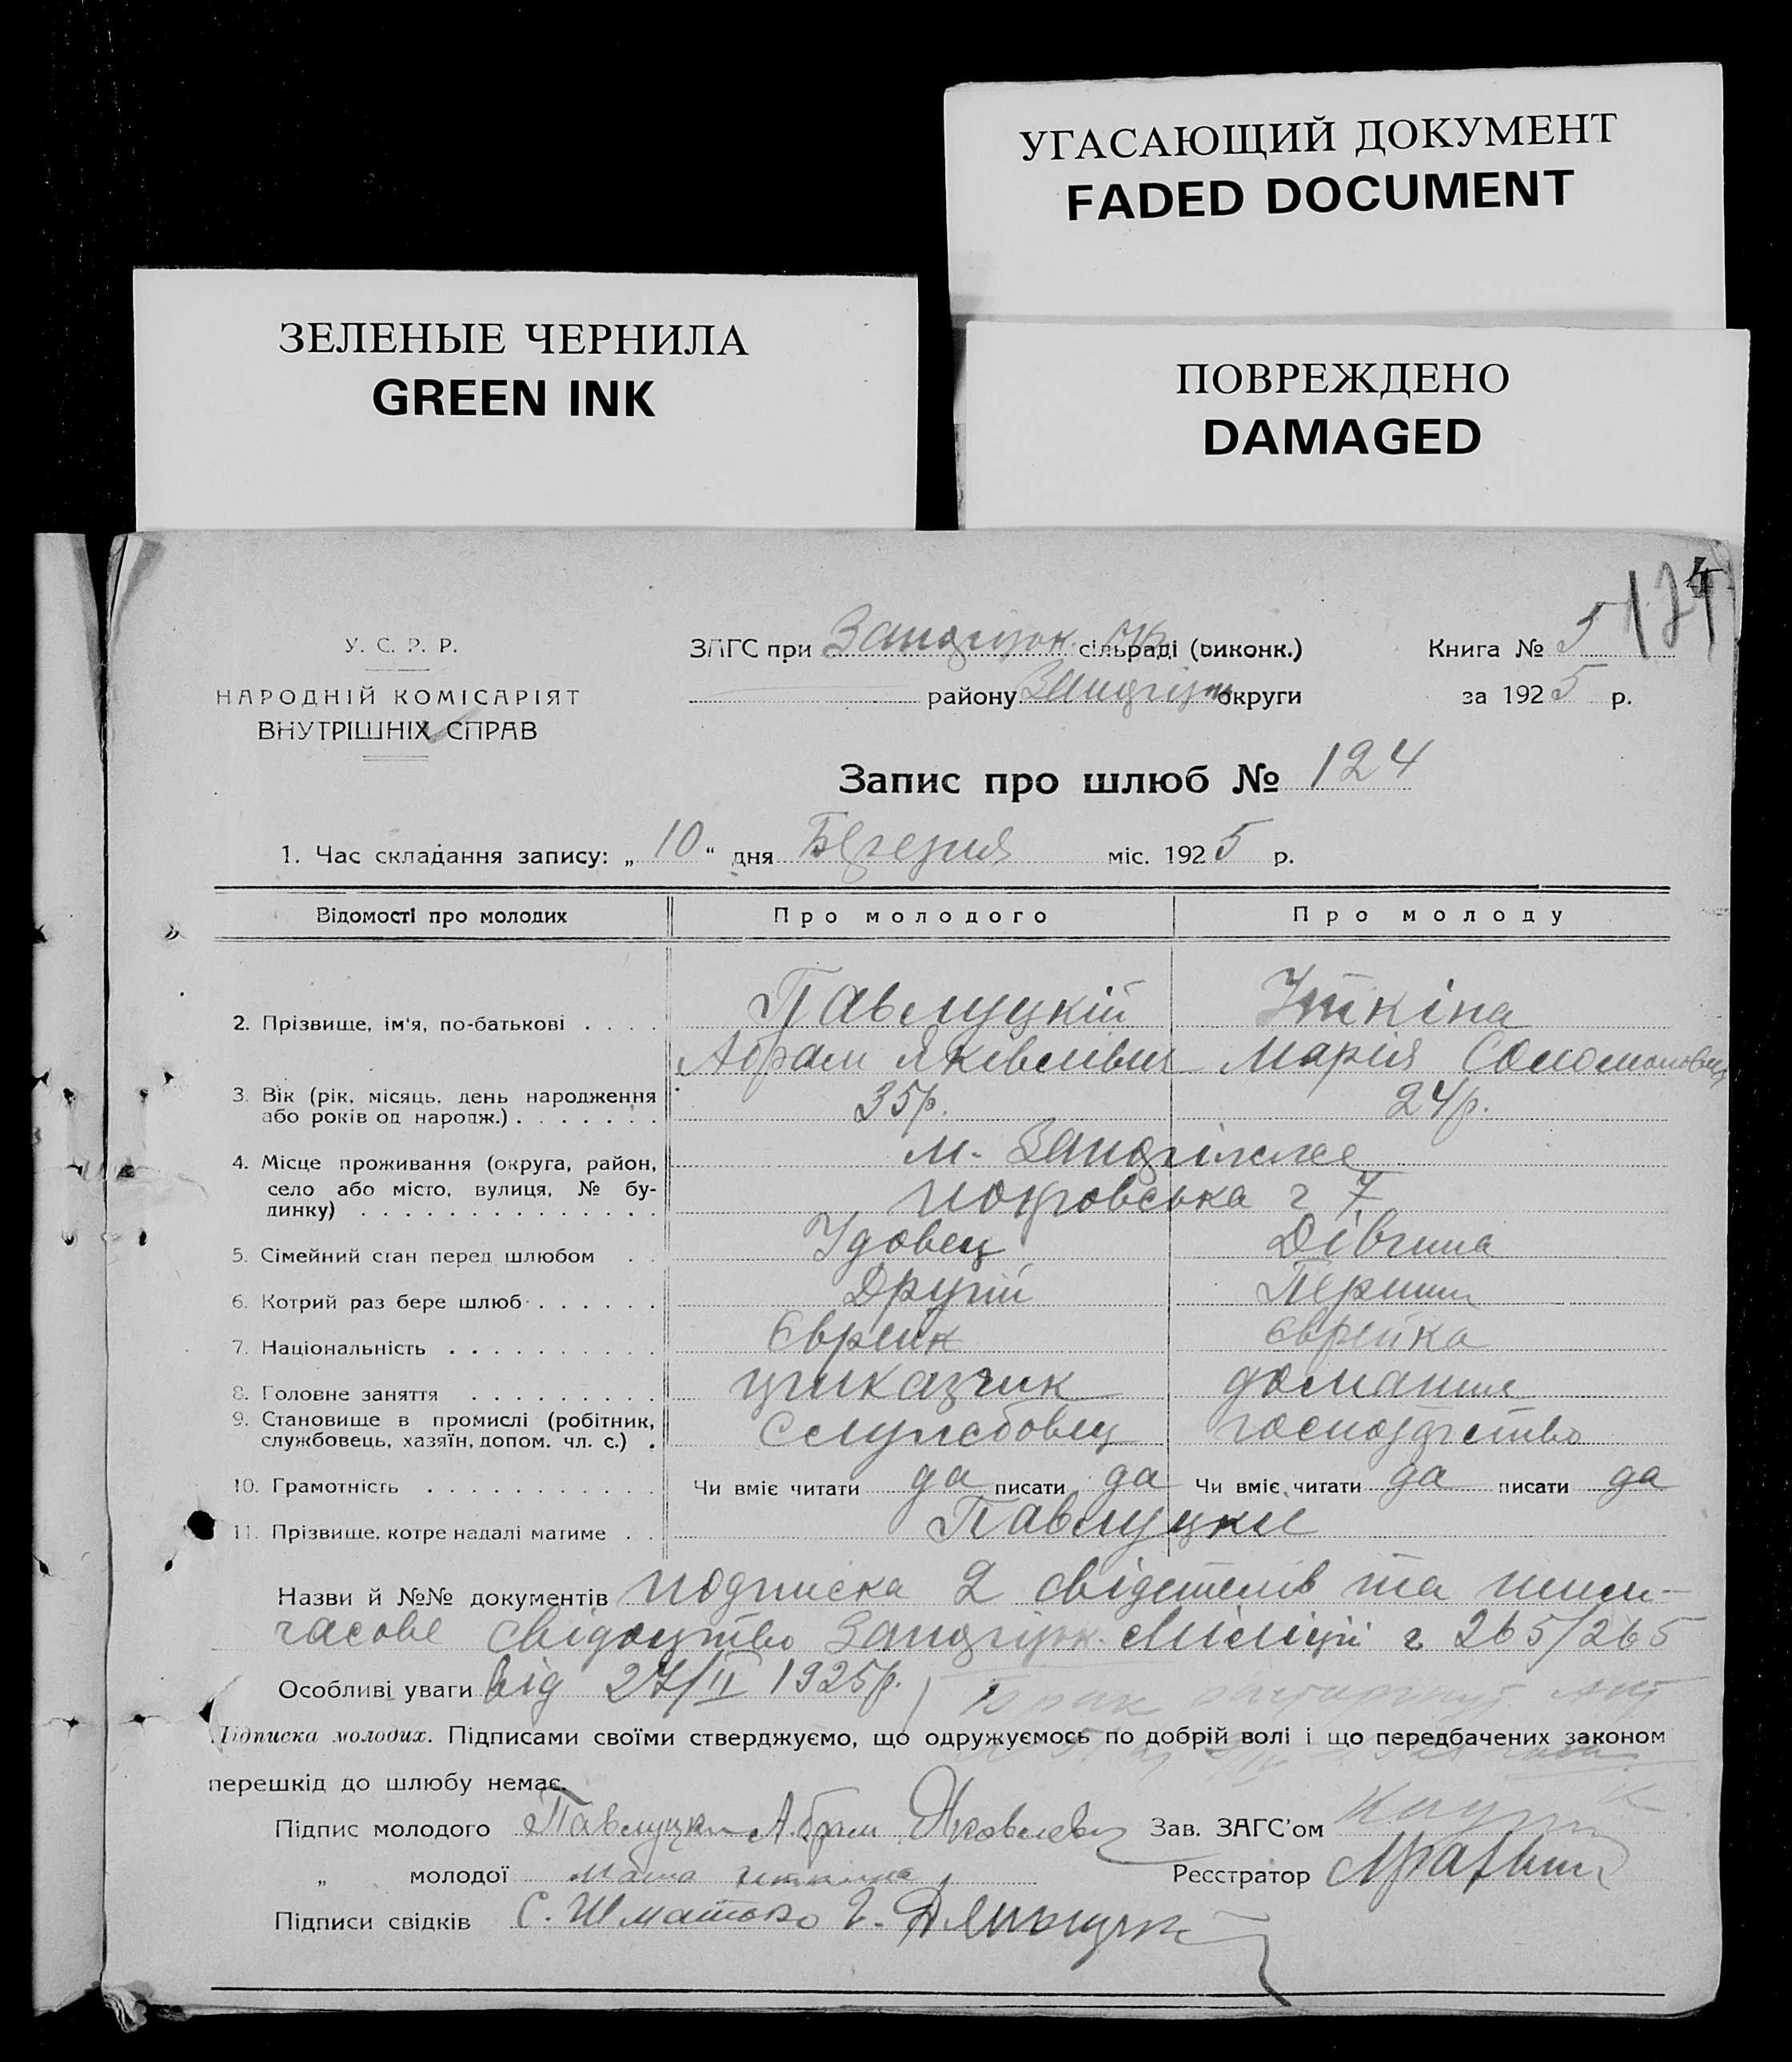 УГАСАЮЩИЙ ДОКУМЕНТ
FADED DOCUMENT
ЗЕЛЕНЫЕ ЧЕРНИЛА
GREEN INK
ПОВРЕЖДЕНО
DAMAGED
У. С. Р. Р.
НАРОДНІЙ КОМІСАРІЯТ
ВНУТРІШНІХ СПРАВ
ЗАГС при сільраді (виконк.)
району округи
Книга № 5
за 1925 р.
Запис про шлюб № 124
1. Час складання запису: „ 10 “ дня Березня міс. 1925 р.
Відомості про молодих Про молодого Про молоду
2. Прізвище, ім'я, по-батькові . . . . Павлуцкій Уткіна
Абрам Яківлівич Марія
3. Вік (рік, місяць, день народження
або років од народж.) . . . . . . . 35р. 24р.
4. Місце проживання (округа, район,
м. Запоріжже
село або місто, вулиця, № бу-
динку) . . . . . . . . . . . . . . Покровська 7
5. Сімейний стан перед шлюбом . . Удовец Дівчина
6. Котрий раз бере шлюб . . . . . . Другій
7. Національність . . . . . . . . . . Єврейка
8. Головне заняття . . . . . . . . . приказчик домашнє
9. Становище в промислі (робітник,
службовець, хазяїн, допом. чл. с.) . Службовец
10. Грамотність . . . . . . . . . . . Чи вміє читати да писати да Чи вміє читати да писати да
11. Прізвище, котре надалі матиме . . Павлуцки
Назви й №№ документів подписка 2 свідетелів та тим-
часове свідоцтво Запоріжж. Міліції 265/265
Особливі уваги від 27/II 1925р.
Підписка молодих. Підписами своїми стверджуємо, що одружуємось по добрій волі і що передбачених законом
перешкід до шлюбу немає.
Підпис молодого Абрам Яковлевич Зав. ЗАГС'ом
„ молодої Реєстратор
Підписи свідків С. Шматько